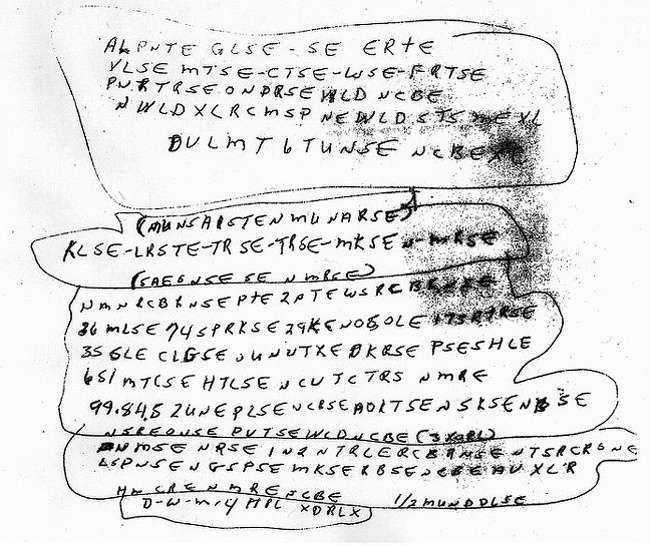 ALPNTE GLSE-SE ERTE
VLSE MTSE-CTSE-WSE-FRTSE
PNRTRSEONDRSEWLD NCBE
NWLDXLRCMSP NEWLDSTSMEXL
DULMT6TUNSE NCBEXC
(MUNSARSTENMUNARSE)
KLSE-LRSTE-TRSE-TRSE-MKSEN-MRSE
(SAEGNSESE NMRSE)
NMNRCBRNSEPTE2NTEWSRCBRNSE
36MLSE74SPRKSE29KENOSOLE173RTRSE
35GLE CLGSEUNUTXEDKRSE PSESHLE
651MTCSE HTLSENCUTCTRS NMRE
99.84.52UNEPLSENCRSEAOLTSENSKSENBSE
NSREONSE PUTSEWLDNCBE (3XORL)
NMSE NRSE IN2NTRLERCBRNSENTSRCRONE
LSPNSENGSPSE MKSERBSENCBEAUXLR
HMCRE NMRE NCBE 1/2MUNDDLSE
D-W-M-4 MPL XDRLX